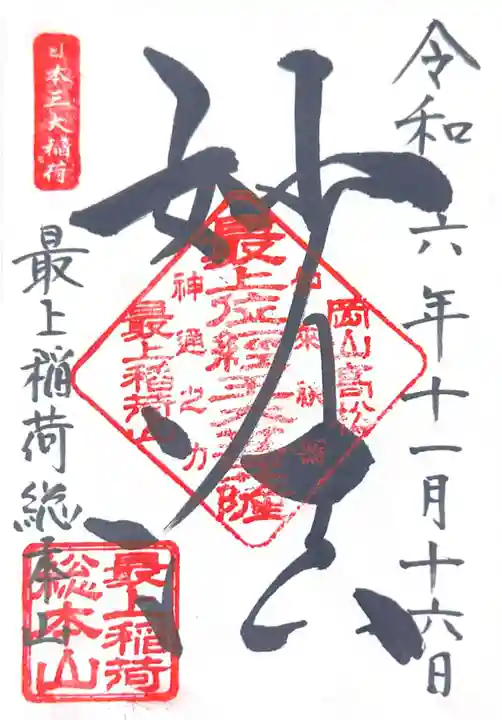 令和六年十一月十六日
妙法
日本三大稲荷
最上稲荷総本山
岡山高松
如来秘密
最上位経王大菩薩
神通之力
最上稲荷山
最上稲荷
総本山